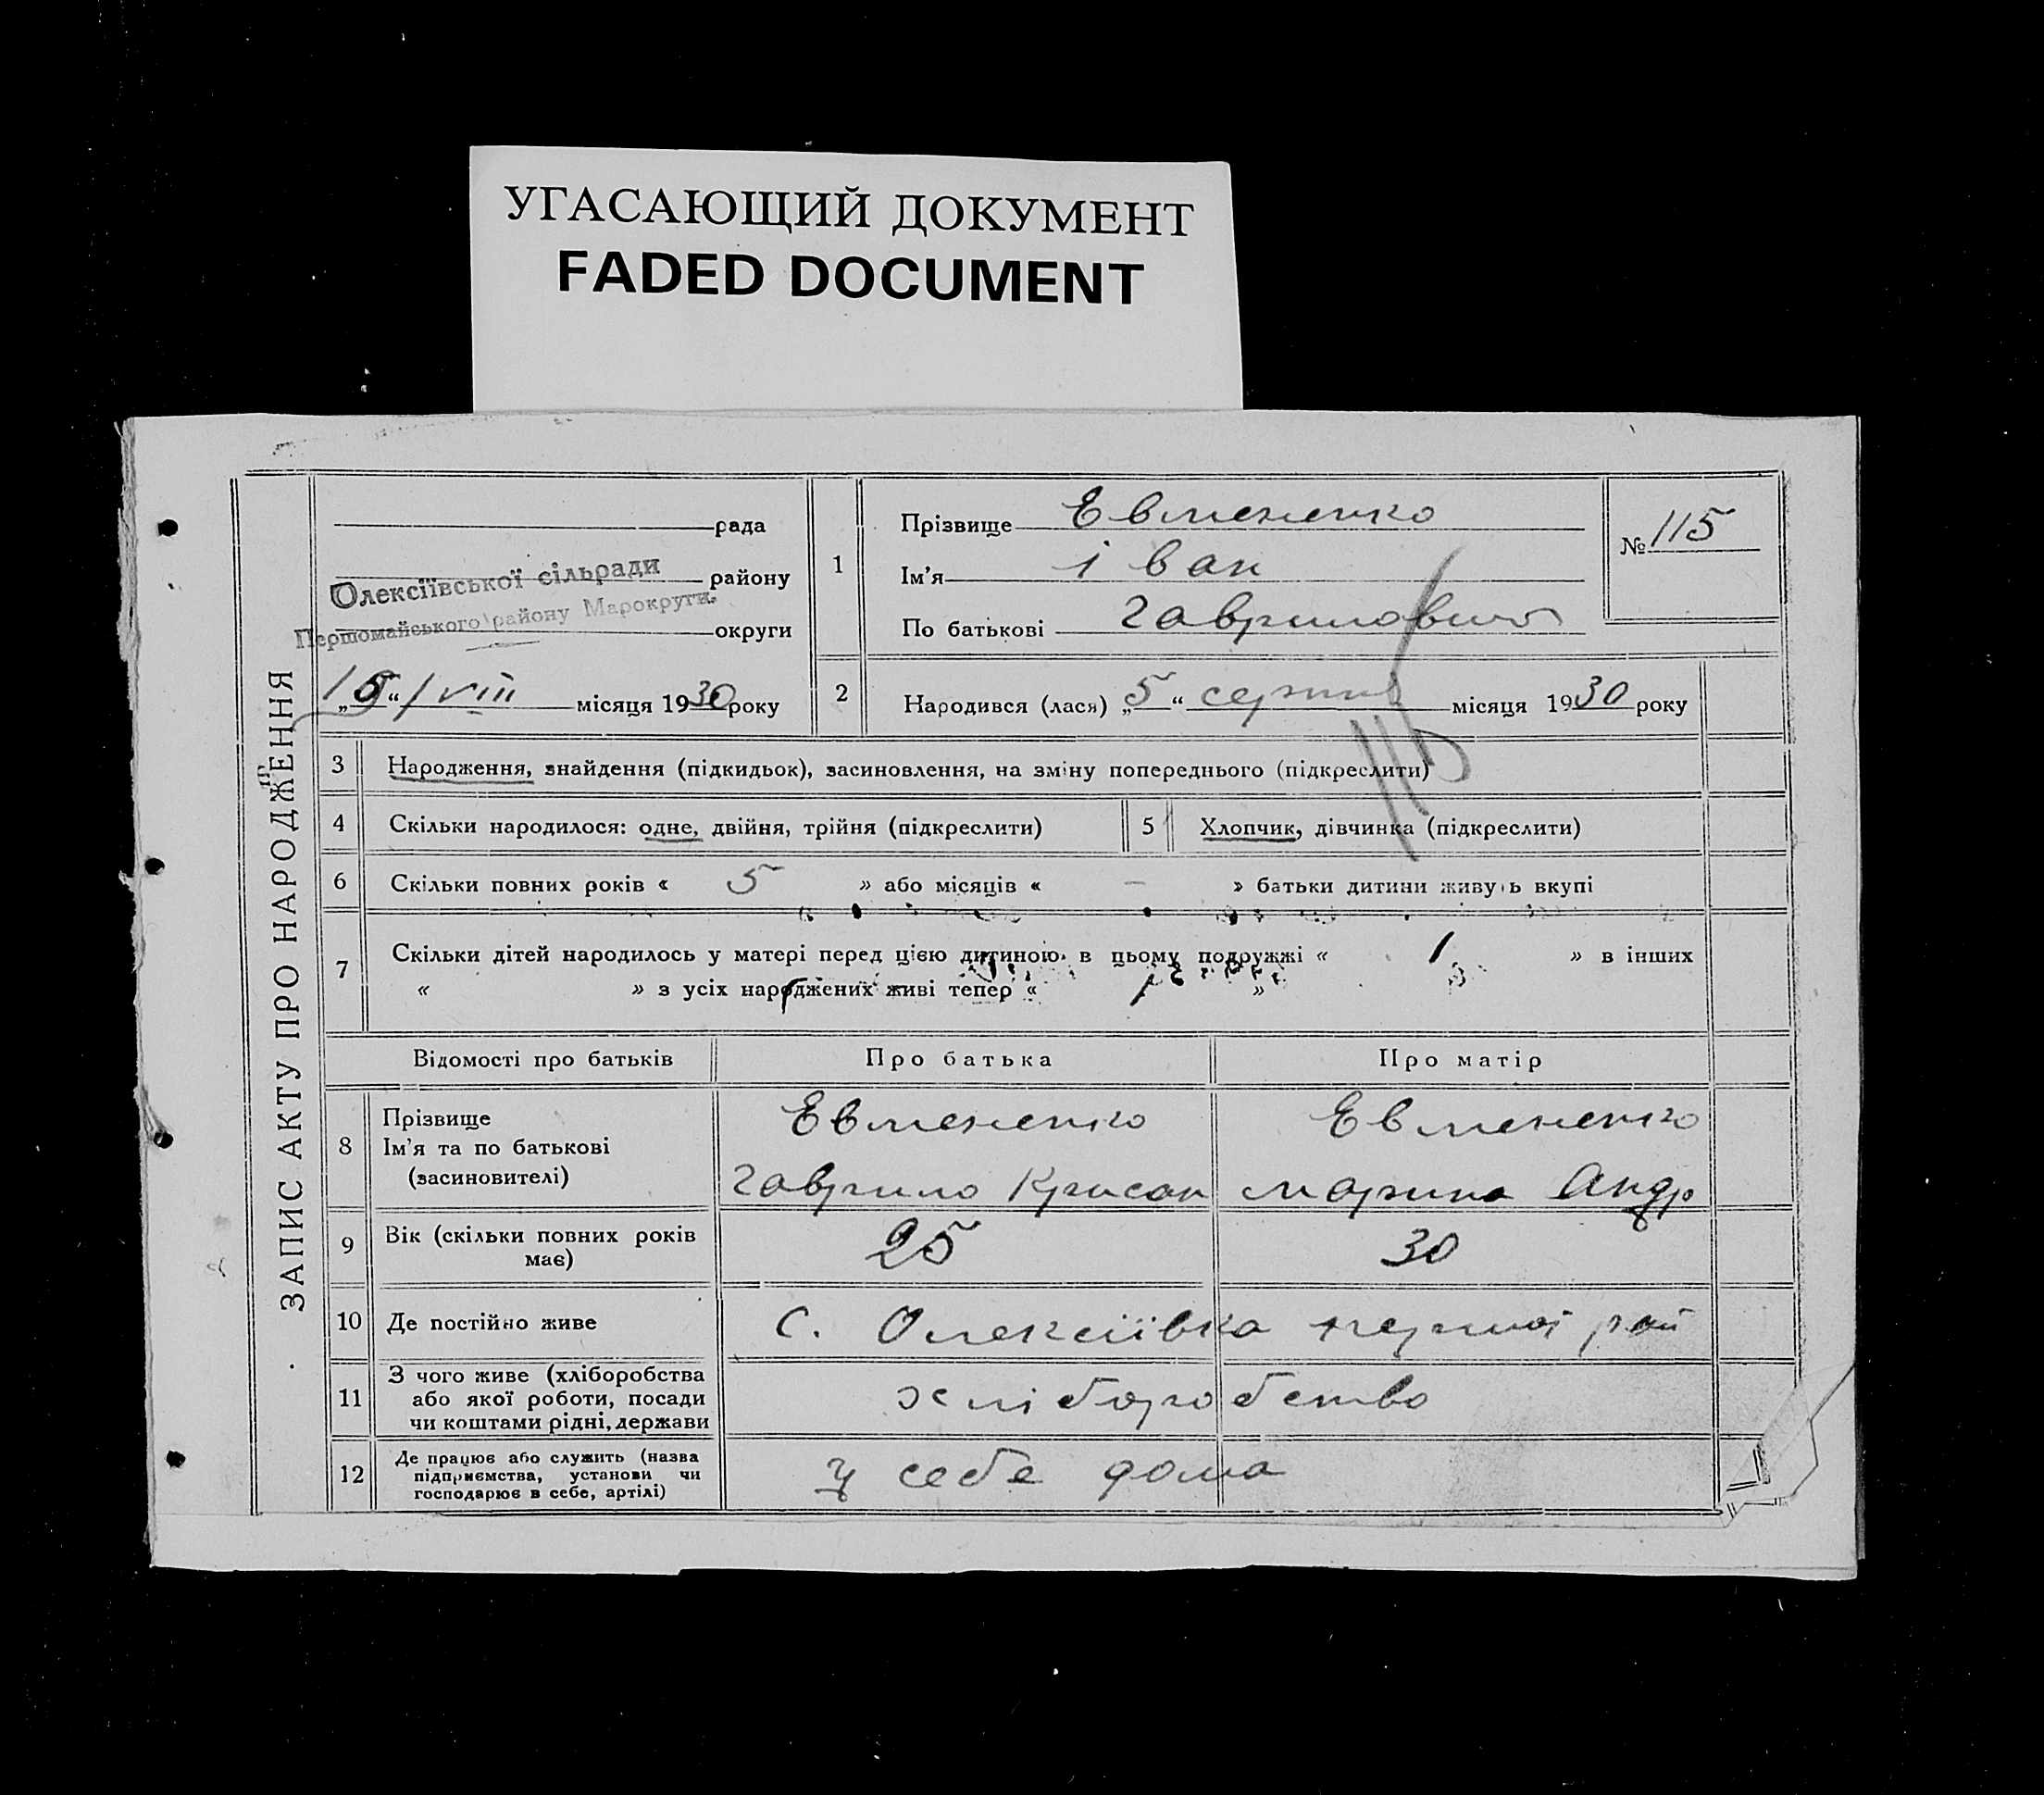 УГАСАЮЩИЙ ДОКУМЕНТ
FADED DOCUMENT
ЗАПИС АКТУ ПРО НАРОДЖЕННЯ
рада
Олексіївської сільради району
Першомайського району Марокруги. округи
„15“ VIII місяця 1930 року
1
Прізвище Евмененко
Ім'я Іван
По батькові Гаврилович
№ 115
2 Народився (лася) „5“ серпня місяця 1930 року
115
3 Народження, знайдення (підкидьок), засиновлення, на зміну попереднього (підкреслити)
4 Скільки народилося: одне, двійня, трійня (підкреслити) 5 Хлопчик, дівчинка (підкреслити)
6 Скільки повних років « 5 » або місяців « — » батьки дитини живуть вкупі
7 Скільки дітей народилось у матері перед цією дитиною в цьому подружжі « 1 » в інших
« » з усіх народжених живі тепер « 1 »
Відомості про батьків Про батька Про матір
8 Прізвище
Ім'я та по батькові
(засиновителі)
Евмененко Евмененко
Гаврило Крисан Марина Андр
9 Вік (скільки повних років
має)
25 30
10 Де постійно живе с. Олексіївка рай
11 З чого живе (хліборобства
або якої роботи, посади
чи коштами рідні, держави
хліборобство
12 Де працює або служить (назва
підприємства, установи чи
господарює в себе, артілі)
у себе дома